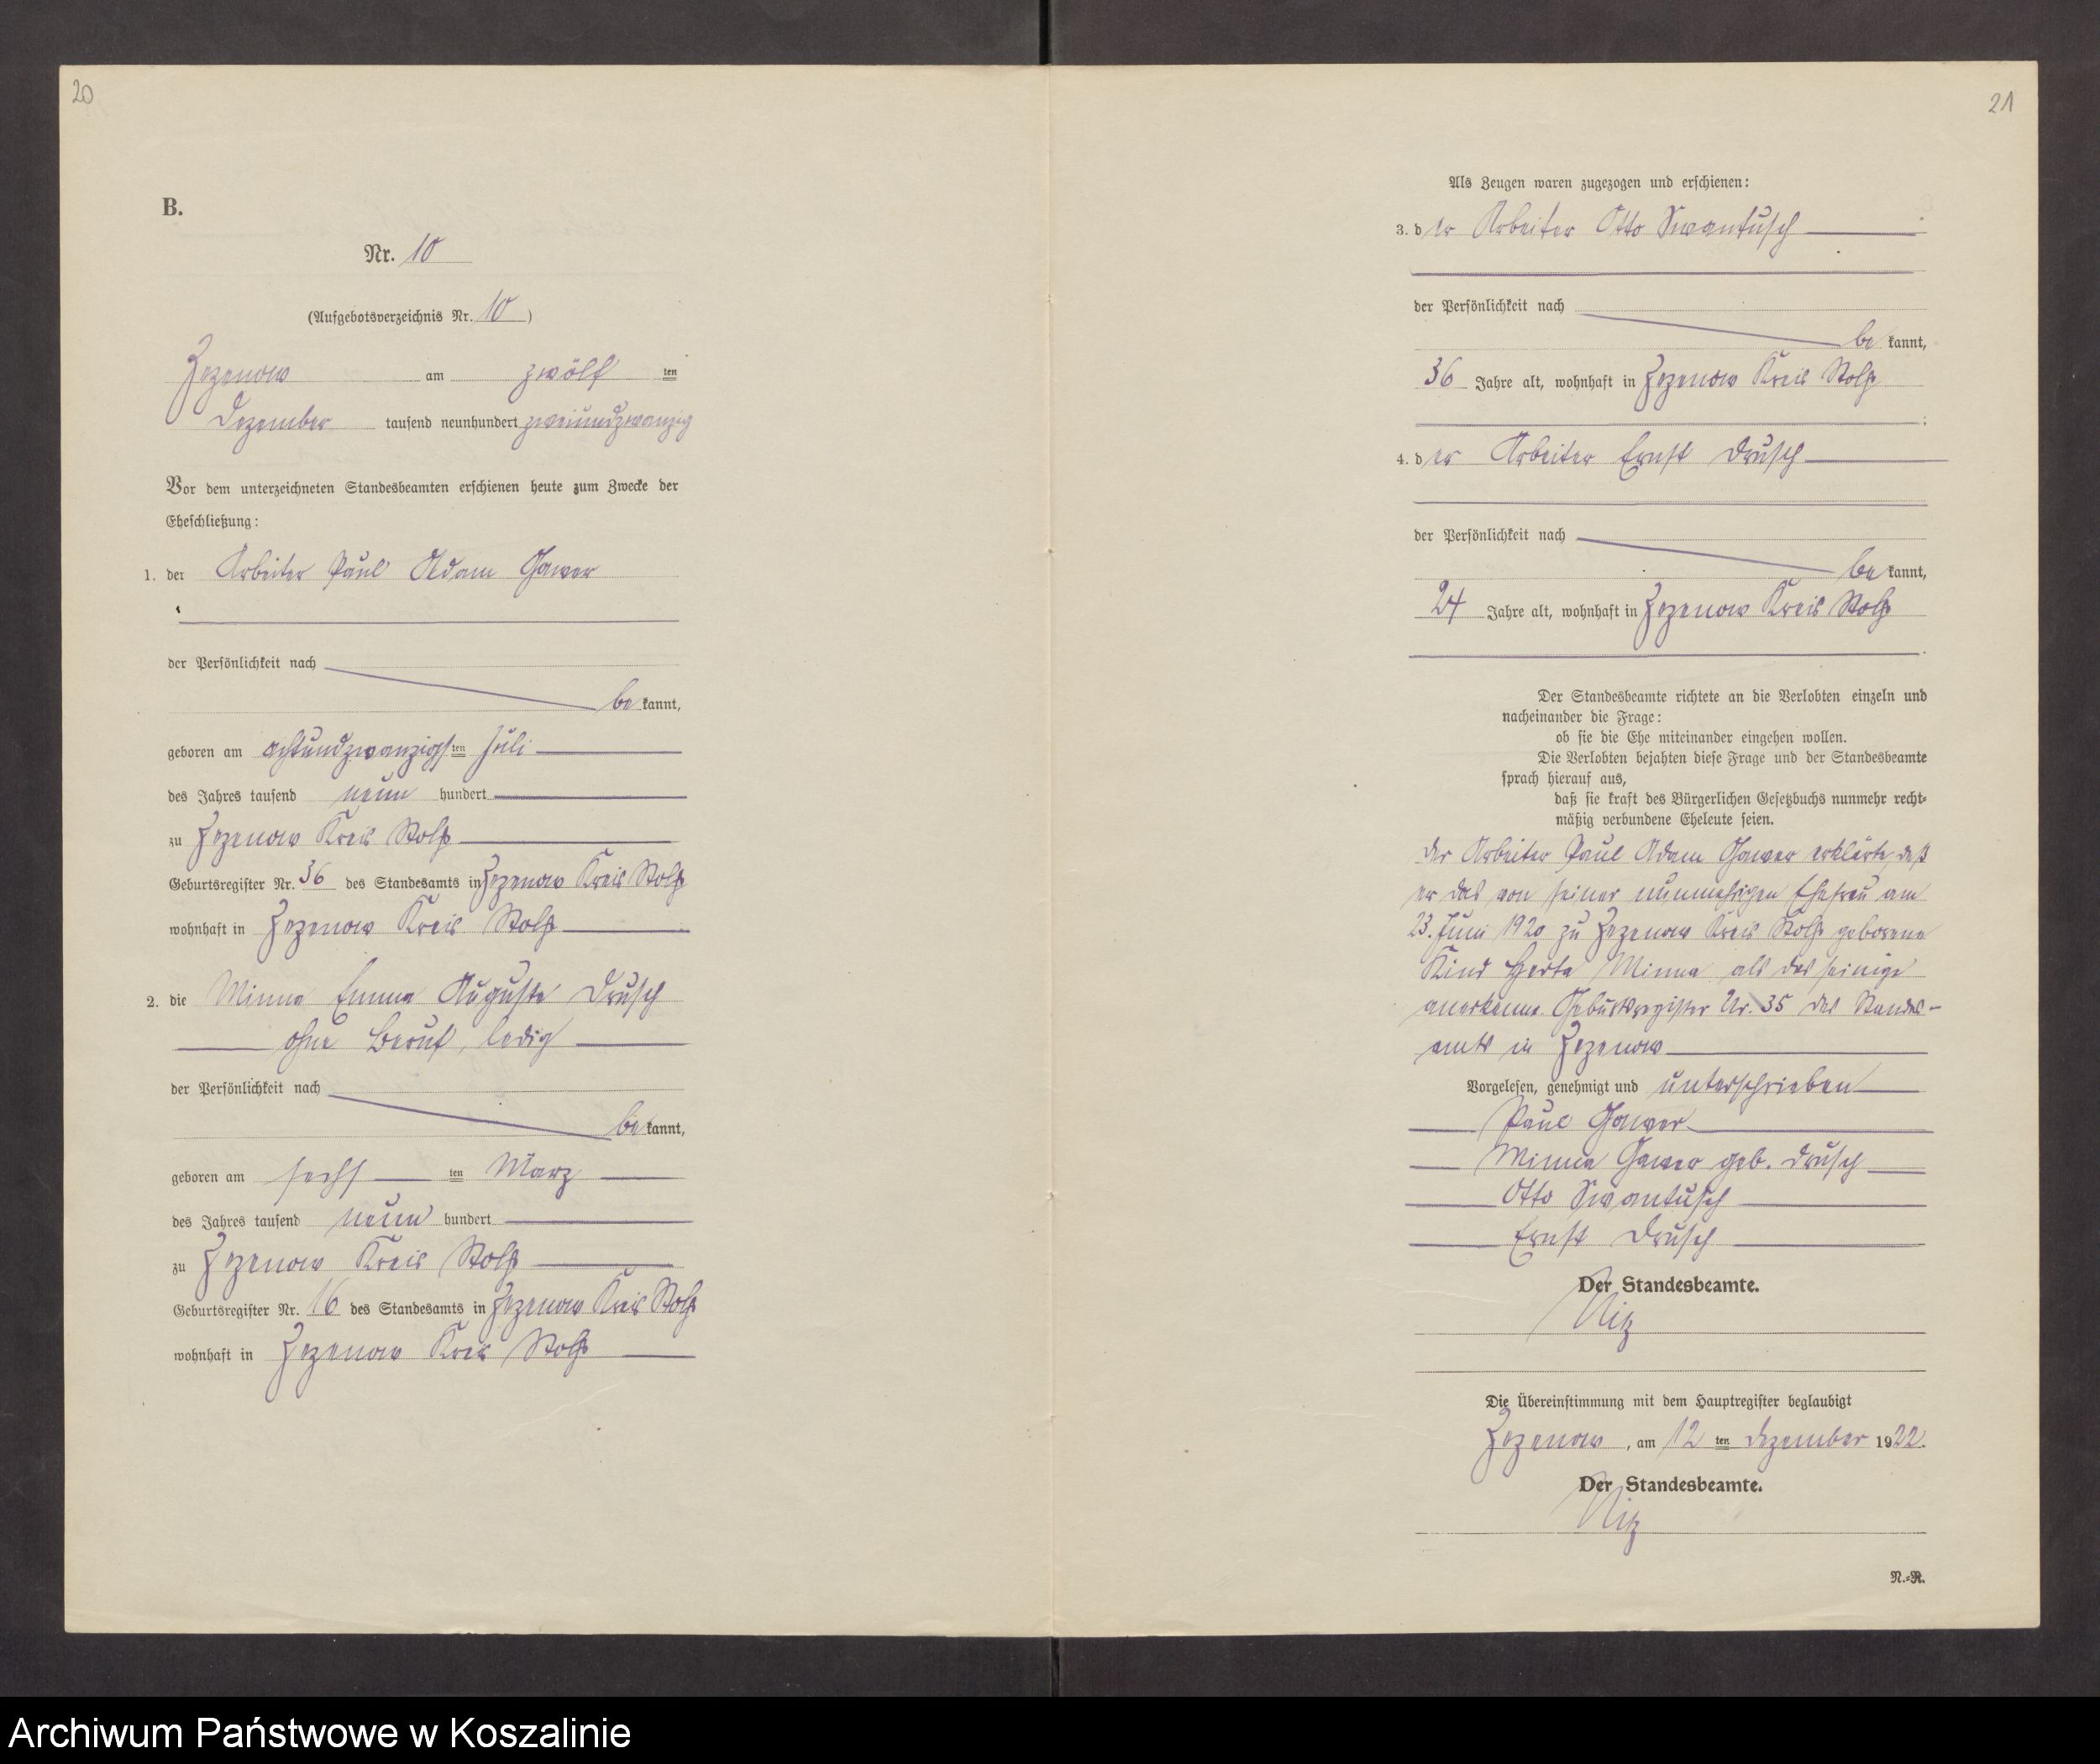 20
B.
Nr. 10
(Aufgebotsverzeichnis Nr. 10)
Zezenow am zwölf ten
Dezember tausend neunhundert zweiundzwanzig
Vor dem unterzeichneten Standesbeamten erschienen heute zum Zwecke der
Eheschließung:
1. der Arbeiter Paul Adam Gawer
der Persönlichkeit nach
be kannt,
geboren am achtundzwanzigsten Juli
des Jahres tausend neun hundert
zu Zezenow Kreis Stolp
Geburtsregister Nr. 36 des Standesamts in Zezenow Kreis Stolp
wohnhaft in Zezenow Kreis Stolp
2. die Minna Emma Auguste Drusch
ohne Beruf, ledig
der Persönlichkeit nach
be kannt,
geboren am sechs ten März
des Jahres tausend neun hundert
zu Zezenow Kreis Stolp
Geburtsregister Nr. 16 des Standesamts in Zezenow Kreis Stolp
wohnhaft in Zezenow Kreis Stolp
21
Als Zeugen waren zugezogen und erschienen:
3. der Arbeiter Otto Swantusch
der Persönlichkeit nach
be kannt,
36 Jahre alt, wohnhaft in Zezenow Kreis Stolp
;
4. der Arbeiter Ernst Drusch
der Persönlichkeit nach
be kannt,
24 Jahre alt, wohnhaft in Zezenow Kreis Stolp
Der Standesbeamte richtete an die Verlobten einzeln und
nacheinander die Frage:
ob sie die Ehe miteinander eingehen wollen.
Die Verlobten bejahten diese Frage und der Standesbeamte
sprach hierauf aus,
daß sie kraft des Bürgerlichen Gesetzbuchs nunmehr recht-
mäßig verbundene Eheleute seien.
Der Arbeiter Paul Adam Gawer erklärte daß
er das von seiner nunmehrigen Ehefrau am
23. Juni 1920 zu Zezenow Kreis Stolp geborene
Kind Herta Minna als das seinige
anerkenne. Geburtsregister Nr. 35 des Standes-
amts in Zezenow
Vorgelesen, genehmigt und unterschrieben
Paul Gawer
Minna Gawer geb. Drusch
Otto Swantusch
Ernst Drusch
Der Standesbeamte.
Die Übereinstimmung mit dem Hauptregister beglaubigt
Zezenow, am 12 ten Dezember 1922.
Der Standesbeamte.
N.-R.
Archiwum Państwowe w Koszalinie